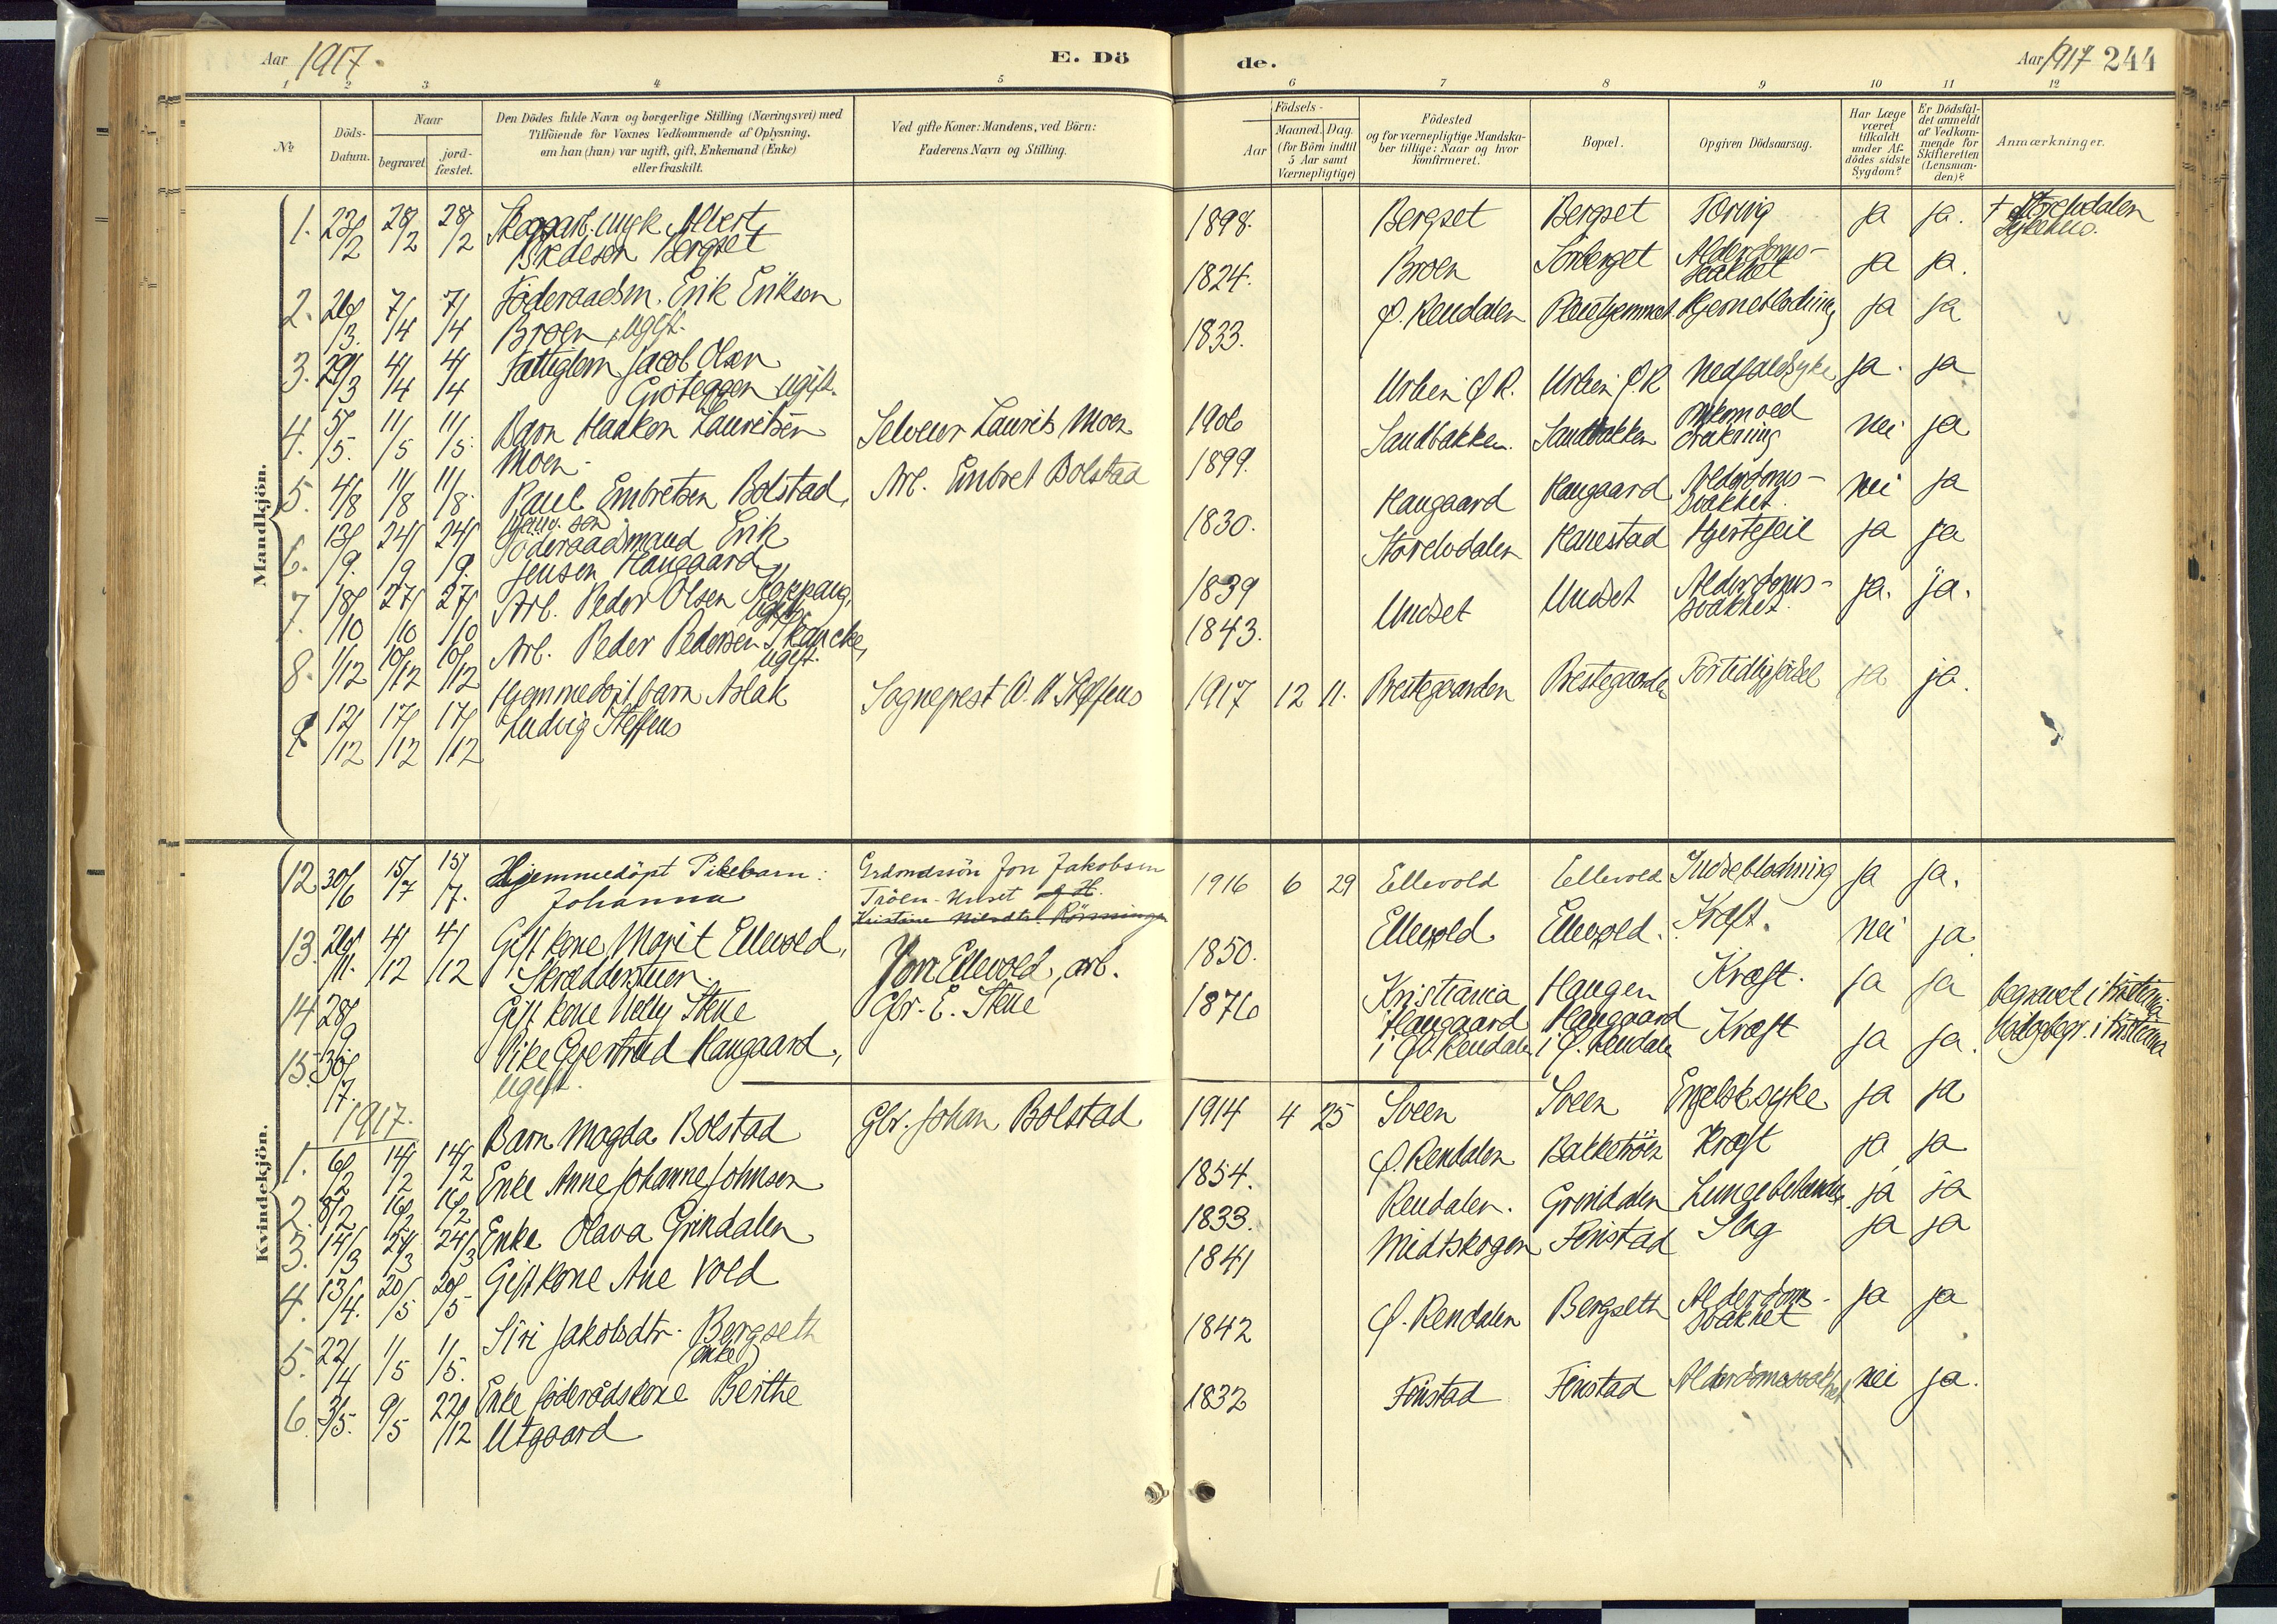 Aar 1917.
E. Dö
de.
Aar 1917 244
1 2 3 4 5 6 7 8 9 10 11 12
№
Döds-
Datum.
Naar
begravet
jord-
fæstet.
Den Dödes fulde Navn og borgerlige Stilling (Næringsvei) med
Tilföiende for Voxnes Vedkommende af Oplysning,
om han (hun) var ugift, gift, Enkemand (Enke)
eller fraskilt.
Ved gifte Koner: Mandens, ved Börn:
Faderens Navn og Stilling.
Födsels-
Aar
Maaned. Dag.
(for Börn indtil
5 Aar samt
Værnepligtige)
Födested
og for værnepligtige Mandska-
ber tillige: Naar og hvor
konfirmeret.
Bopæl.
Opgiven Dödsaarsag.
Har Læge
været
tilkaldt
under Af-
dödes sidste
Sygdom?
Er Dödsfal-
det anmeldt
af Vedkom-
mende for
Skifteretten
(Lensman-
den)?
Anmærkninger.
Mandkjön.
1. 23/2 28/2 28/2 Skogsarb. ungk. Albert
Bredesen Bergset
1898. Bergset Bergset ja ja. † Storelvdalen
Sykehus.
2. 26/3. 7/4 7/4 Föderaadsm. Erik Eriksen
Broen, ugift.
1824. Broen Sörberget Alderdoms-
svakhet ja ja.
3. 29/3 4/4 4/4 Fattiglem Jacob Olsen
Gröteggen ugift.
1833. Ø. Rendalen Pleiehjemmet Hjerneblödning ja ja
4. 5/5. 11/5 11/5. Barn Haakon Lauritsen
Moen.
Selveier Laurits Moen
1906 Ø R. Ø. R Nedfaldsyke ja. ja
5. 4/8 11/8 11/8. Paul Embretsen Bolstad,
Arb. Embret Bolstad
1899. Sandbakken. Sandbakken omkom ved
drukning nei ja
6. 13/9. 24/9 24/9. Föderaadsmand Erik
Jensen Haugaard
1830. Haugaard Haugaard Alderdoms-
svakhet. nei ja
7. 18/10 27/10 27/10 Arb. Peder Olsen Koppang,
ugift
1839 Storelvdalen Hanestad Hjertefeil ja ja
8. 1/12 10/12 10/12 Arb. Peder Pedersen Skancke,
ugift.
1843. Undset Undset Alderdoms-
svakhet. ja. ja.
9 12/12 17/12 17/12 Hjemmedöpt barn Aslak
Ludvig Steffens
Sogneprest O. N Steffens
1917 12 11. Prestegaarden Prestegaarden Fortidlig födsel ja ja.
Kvindekjön.
12 30/6 15/7 15/7. Hjemmedöpt Pikebarn:
Johanna
Jon Jakobsen
Tröen-Unset
1916 6 29 Ellevold Ellevold Indreblödning ja ja.
13. 26/11. 4/12 4/12 Gift kone Marit Ellevold,
Skrædderstuen.
Jon Ellevold, arb.
1850. Ellevold Ellevold. Kræft. nei ja
14 28/9 Gift kone Nelly Stene
Gbr. E. Stene
1876 Kristiania Haugen Kræft. ja ja begravet i Kristiania
15. 30/7. Pike Gjertrud Haugaard,
ugift.
Haugaard
i Ø. Rendalen
Haugaard
i Ø. Rendalen
Kræft ja ja.
1917.
1. 6/2 14/2 14/2 Barn Magda Bolstad
Gbr. Johan Bolstad
1914 4 25 Sveen Sveen Engelsksyke ja ja
2. 8/2 16/2 16/2 Enke Anne Johanne Johnsen
1854. Ø. Rendalen Bakketröen Kræft ja ja
3. 14/3 24/3 24/3 Enke Olava Grindalen
1833. Rendalen. Grindalen ja ja
4. 13/4. 20/5 20/5 Gift kone Ane Vold
1841 Midtskogen Finstad Slag ja ja
5. 22/4 1/5 1/5. Siri Jakobsdtr. Bergseth
(enke)
1842 Ø. Rendalen Bergseth Alderdoms-
svakhet ja ja
6. 3/5. 9/5 22/12 Enke föderådskone Berthe
Utgaard
1832 Finstad Finstad Alderdomssvakhet nei ja.